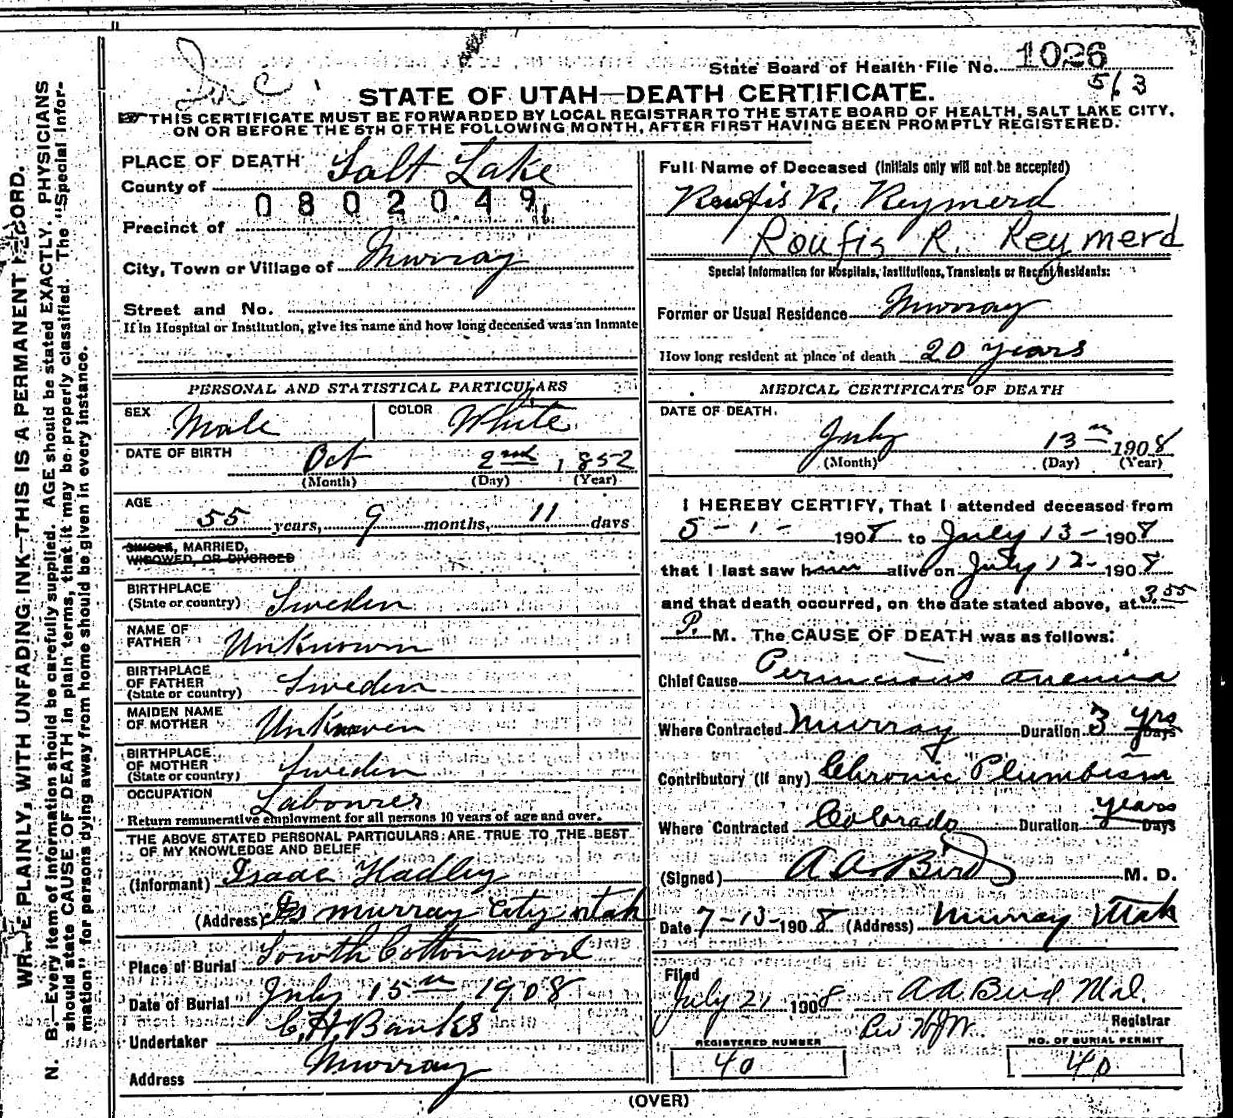 State Board of Health File No. 1026
5/3
Inc.
STATE OF UTAH—DEATH CERTIFICATE.
THIS CERTIFICATE MUST BE FORWARDED BY LOCAL REGISTRAR TO THE STATE BOARD OF HEALTH, SALT LAKE CITY,
ON OR BEFORE THE 5TH OF THE FOLLOWING MONTH, AFTER FIRST HAVING BEEN PROMPTLY REGISTERED.
PLACE OF DEATH
County of Salt Lake
0802049
Precinct of
City, Town or Village of Murray
Street and No.
If in Hospital or Institution, give its name and how long deceased was an Inmate
Full Name of Deceased (Initials only will not be accepted)
Roufis R. Reymerd
Roufis R. Reymerd
Special Information for Hospitals, Institutions, Transients or Recent Residents:
Former or Usual Residence Murray
How long resident at place of death 20 years
PERSONAL AND STATISTICAL PARTICULARS
SEX Male COLOR White
DATE OF BIRTH Oct 2nd, 1852
(Month) (Day) (Year)
AGE 55 years, 9 months, 11 days
SINGLE, MARRIED,
WIDOWED, OR DIVORCED
BIRTHPLACE
(State or country) Sweden
NAME OF
FATHER Unknown
BIRTHPLACE
OF FATHER
(State or country) Sweden
MAIDEN NAME
OF MOTHER Unknown
BIRTHPLACE
OF MOTHER
(State or country) Sweden
OCCUPATION Labourer
Return remunerative employment for all persons 10 years of age and over.
THE ABOVE STATED PERSONAL PARTICULARS ARE TRUE TO THE BEST
OF MY KNOWLEDGE AND BELIEF
(Informant) Isaac Hadley
(Address) Murray City Utah
Place of Burial South Cottonwood
Date of Burial July 15th 1908
Undertaker C H Banks
Address Murray
MEDICAL CERTIFICATE OF DEATH
DATE OF DEATH.
July 13th 1908
(Month) (Day) (Year)
I HEREBY CERTIFY, That I attended deceased from
5-1- 1908 to July 13-1908
that I last saw him alive on July 12-1908
and that death occurred, on the date stated above, at 3.55
P. M. The CAUSE OF DEATH was as follows:
Chief Cause Pernicious Anemia
Where Contracted Murray Duration 3 yrs Days
Contributory (if any) Chronic Plumbism
Where Contracted Colorado Duration years Days
(Signed) A A Bird M. D.
Date 7-13-1908 (Address) Murray Utah
Filed
July 21 1908 A A Bird M.D.
Registrar
REGISTERED NUMBER
40
NO. OF BURIAL PERMIT
40
(OVER)
N. B.—Every item of information should be carefully supplied. AGE should be stated EXACTLY. PHYSICIANS
should state CAUSE OF DEATH in plain terms, that it may be properly classified. The "Special Infor-
mation" for persons dying away from home should be given in every instance.
WRITE PLAINLY, WITH UNFADING INK—THIS IS A PERMANENT RECORD.